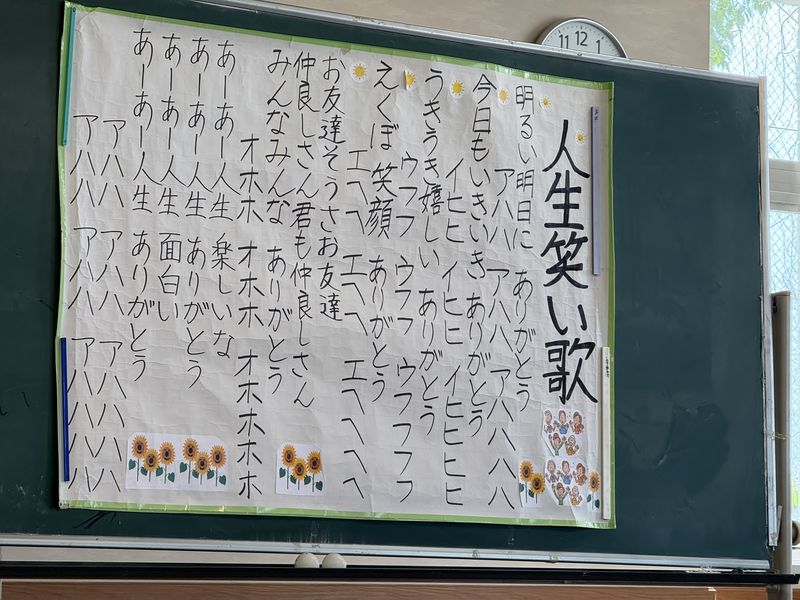 人生笑い歌
明るい明日に ありがとう
アハハ アハハ アハハハハ
今日もいきいき ありがとう
イヒヒ イヒヒ イヒヒヒヒ
うきうき嬉しい ありがとう
ウフフ ウフフ ウフフフフ
えくぼ笑顔 ありがとう
エヘヘ エヘヘ エヘヘヘヘ
お友達そうさお友達
仲良しさん君も仲良しさん
みんなみんな ありがとう
オホホ オホホ オホホホホ
あーあー人生 楽しいな
あーあー人生 ありがとう
あーあー人生 面白い
あーあー人生 ありがとう
アハハ アハハ アハハハハ
アハハ アハハ アハハハハ
11 12 1